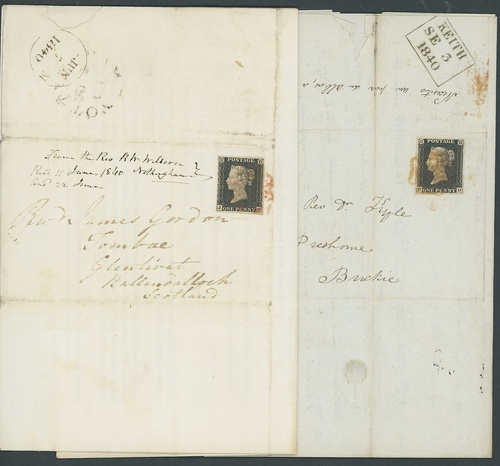 JU
1840
From the Rev R W Willson
Recd 11 June 1840 Nottingham
and 22 June
POSTAGE
ONE PENNY
Revd James Gordon
Tombae
Glenlivat
Ballendalloch
Scotland
KEITH
SE 3
1840
POSTAGE
ONE PENNY
Rev Dr Kyle
Preshome
Buckie